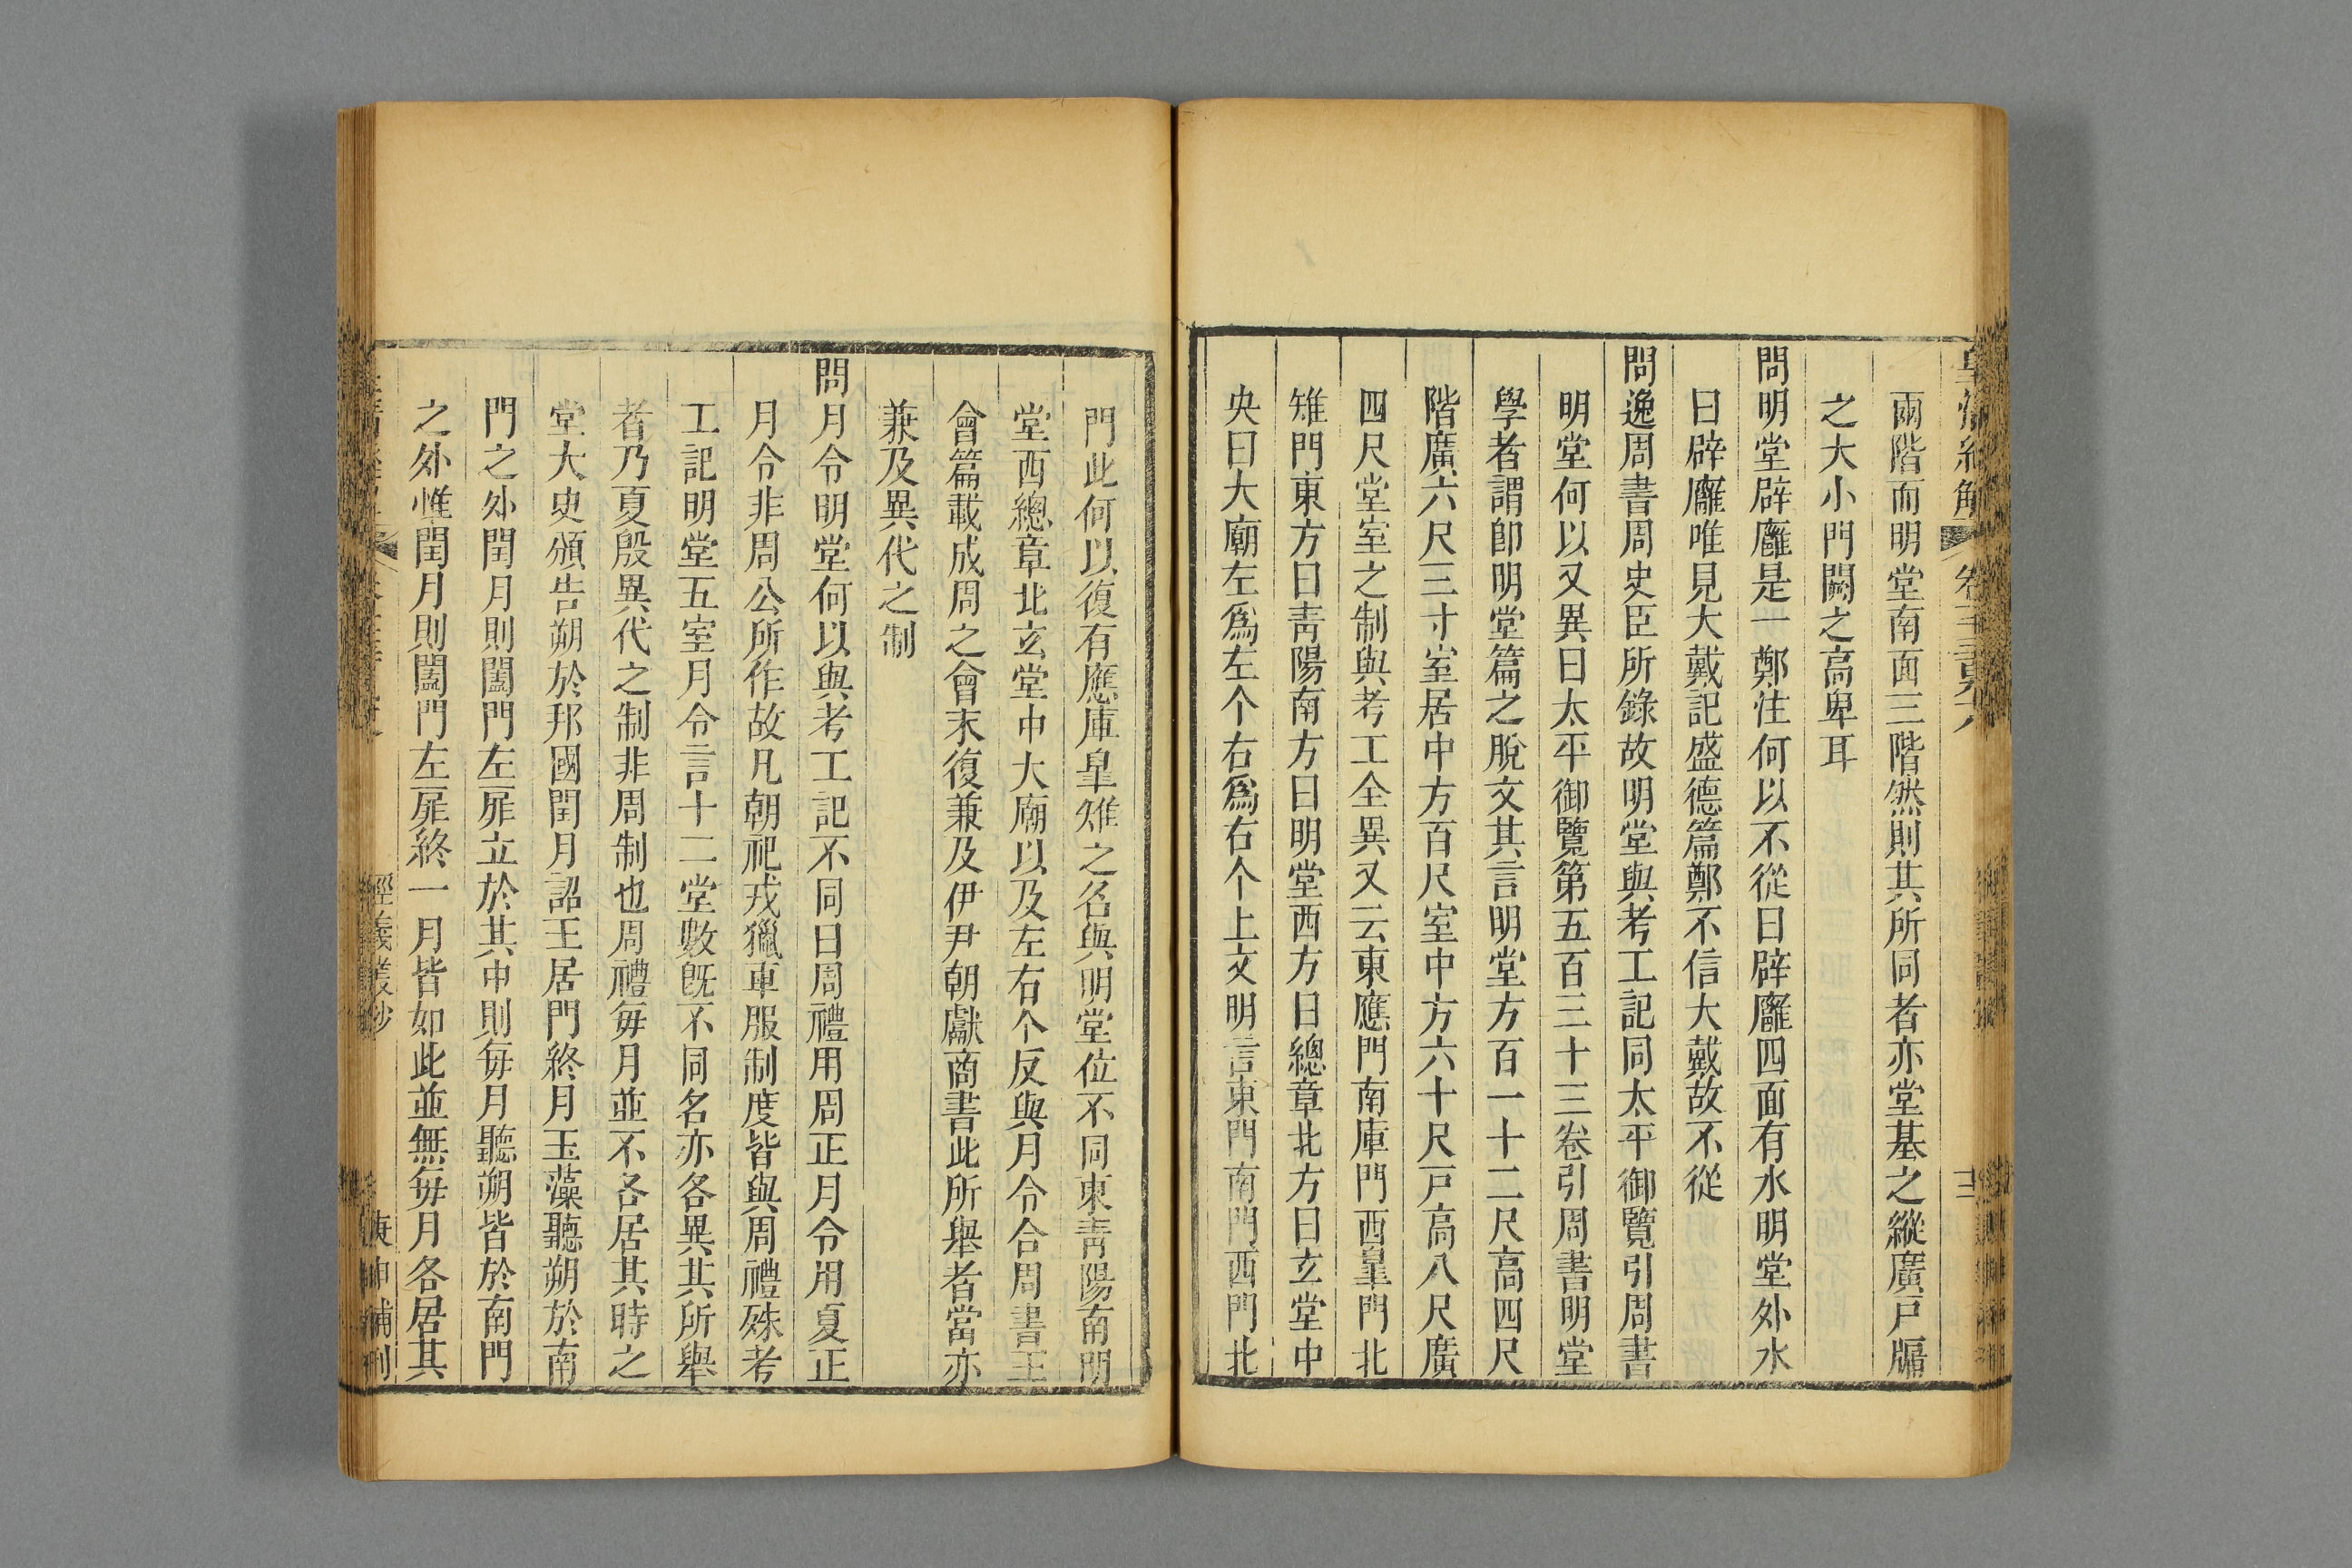 兩階而明堂南面三階然則其所同者亦堂基之縱廣戸牖
之大小門闕之高卑耳
問明堂辟廱是一鄭注何以不從曰辟廱四面有水明堂外水
曰辟廱唯見大戴記盛德篇鄭不信大戴故不從
問逸周書周史臣所錄故明堂與考工記同太平御覽引周書
明堂何以又異曰太平御覽第五百三十三卷引周書明堂
學者謂卽明堂篇之脫文其言明堂方百一十二尺高四尺
階廣六尺三寸室居中方百尺室中方六十尺戸高八尺廣
四尺堂室之制與考工全異又云東應門南庫門西皐門北
雉門東方曰靑陽南方曰明堂西方曰總章北方曰玄堂中
央曰大廟左爲左个右爲右个上文明言東門南門西門北
門此何以復有應庫皐雉之名與明堂位不同東靑陽南明
堂西總章北玄堂中大廟以及左右个反與月令合周書王
會篇載成周之會末復兼及伊尹朝獻商書此所舉者當亦
兼及異代之制
問月令明堂何以與考工記不同曰周禮用周正月令用夏正
月令非周公所作故凡朝祀戎獵車服制度皆與周禮殊考
工記明堂五室月令言十二堂數旣不同名亦各異其所舉
者乃夏殷異代之制非周制也周禮每月並不各居其時之
堂大史頒告朔於邦國閏月詔王居門終月玉藻聽朔於南
門之外閏月則闔門左扉立於其中則每月聽朔皆於南門
之外惟閏月則闔門左扉終一月皆如此並無每月各居其
經義叢鈔
庚申補刊